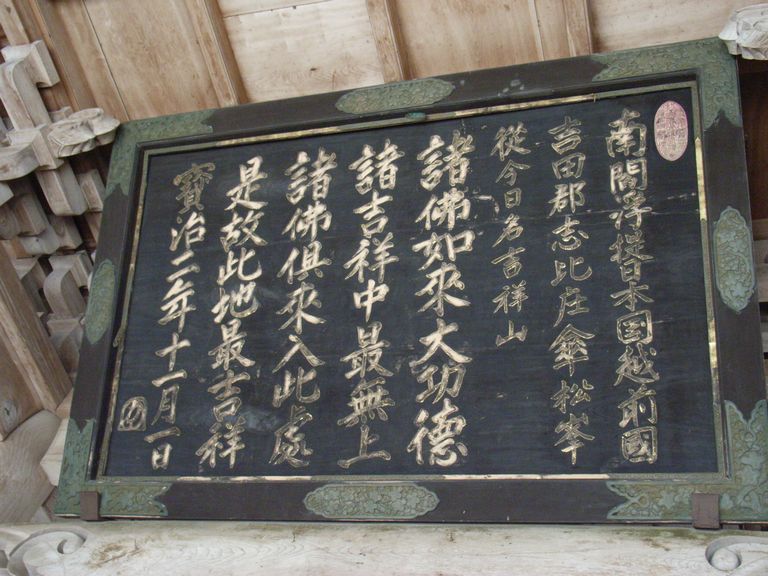 南閻浮提日本國越前國
吉田郡志比庄傘松峯
從今日名吉祥山
諸佛如來大功德
諸吉祥中最無上
諸佛俱來入此處
是故此地最吉祥
寶治二年十一月一日